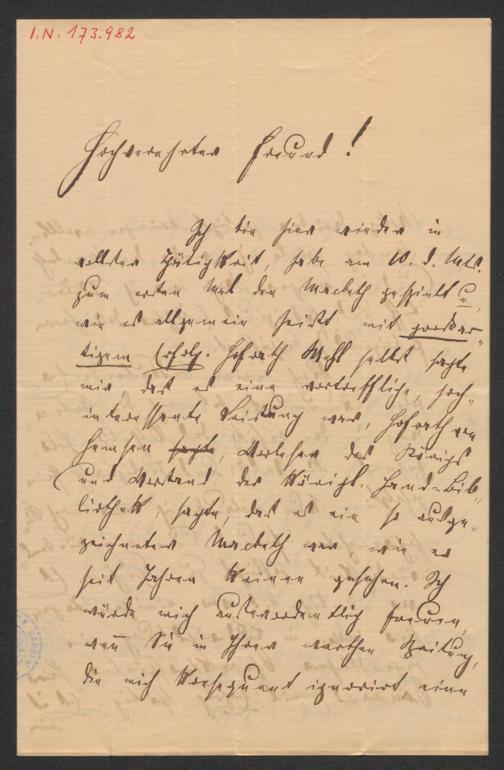 I.N. 173.982
Hochverehrter Freund!
Ich bin hier wieder in
vollster Thätigkeit, habe am 10. d. Mts.
zum ersten Mal den Macbeth gespielt u.
wie es allgemein heißt mit großar-
tigem Erfolg. Hofrath Wehl selbst sagte
mir, daß es eine vortreffliche, hoch-
interessante Leistung war, Hofrath von
Hemsen sagte Vorleser des Königs
und Vorstand der Königl. Hand-Bib-
liothek sagte, daß es ein so ausge-
zeichneter Macbeth war, wie er
seit Jahren keinen gesehen. Ich
würde mich außerordentlich freuen,
wenn Sie in Ihrer werthen Zeitung,
die mich konsequent ignorirt eine